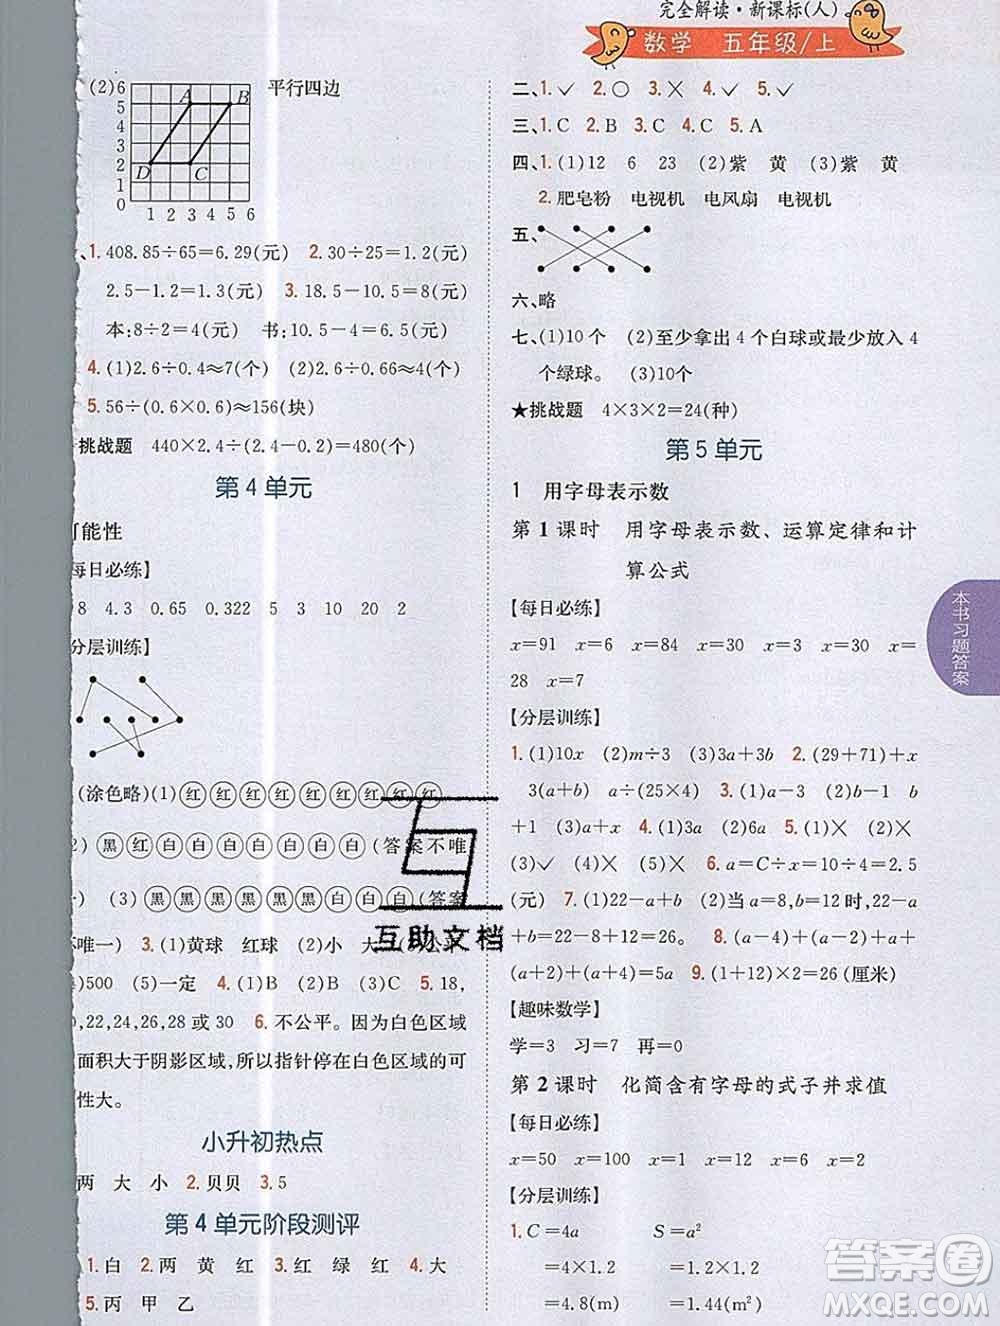 完全解读·新课标(人)
数学 五年级/上
(2) 平行四边
6
5
4
3
2
1
0
A B
D C
1 2 3 4 5 6
、1. 408.85÷65=6.29(元) 2. 30÷25=1.2(元)
2.5-1.2=1.3(元) 3. 18.5-10.5=8(元)
本:8÷2=4(元) 书:10.5-4=6.5(元)
4. (1)2.6÷0.4≈7(个) (2)2.6÷0.4≈6(个)
5. 56÷(0.6×0.6)≈156(块)
挑战题 440×2.4÷(2.4-0.2)=480(个)
第4单元
可能性
每日必练】
8 4.3 0.65 0.322 5 3 10 20 2
分层训练】
(涂色略)(1)红 红 红 红 红 红 红 红 红
2) 黑 红 白 白 白 白 白 白 白 (答案不唯
(3) 黑 黑 黑 黑 黑 黑 白 白 白 (答案
不唯一) 3. (1)黄球 红球 (2)小 大 公平
500 (5)一定 4. (1)B (2)B (3)C 5. 18,
20,22,24,26,28 或 30 6. 不公平。因为白色区域
面积大于阴影区域,所以指针停在白色区域的可
性大。
小升初热点
两 大 小 2. 贝贝 3. 5
第4单元阶段测评
1. 白 2. 两 黄 红 3. 红 绿 红 4. 大
5. 丙 甲 乙
二、1. ✓ 2. ○ 3. × 4. ✓ 5. ✓
三、1. C 2. B 3. C 4. C 5. A
四、1. (1)12 6 23 (2)紫 黄 (3)紫 黄
2. 肥皂粉 电视机 电风扇 电视机
五、
六、略
七、(1)10个 (2)至少拿出4个白球或最少放入4
个绿球。 (3)10个
★挑战题 4×3×2=24(种)
第5单元
1 用字母表示数
第1课时 用字母表示数、运算定律和计
算公式
【每日必练】
x=91 x=6 x=30 x=30 x=3 x=
28 x=7
【分层训练】
1. (1)10x (2)m÷3 (3)3a+3b 2. (29+71)+x
3(a+b) a÷(25×4) 3. (1)a-3 (2)b-1 b
+1 (3)2a 4. (1)3a (2)6a 5. (1)× (2)×
(3)✓ (4)× (5)× 6. a=C÷x=10÷4=2.5
(元) 7. (1)22-a+b (2)当a=8,b=12时,22-a
+b=22-8+12=26 8. (a-4)+(a-2)+a+(a+
2)+(a+4)=5a 9. (1+12)×2=26(厘米)
【趣味数学】
学=3 习=7 再=0
第2课时 化简含有字母的式子并求值
【每日必练】
x=50 x=100 x=1 x=2 x=17
【分层训练】
1. C=4a S=a²
=4×1.2 =1.2×1.2
=4.8(m) =1.44(m²)
本书习题答案
互助文档
答案圈
MXQE.COM